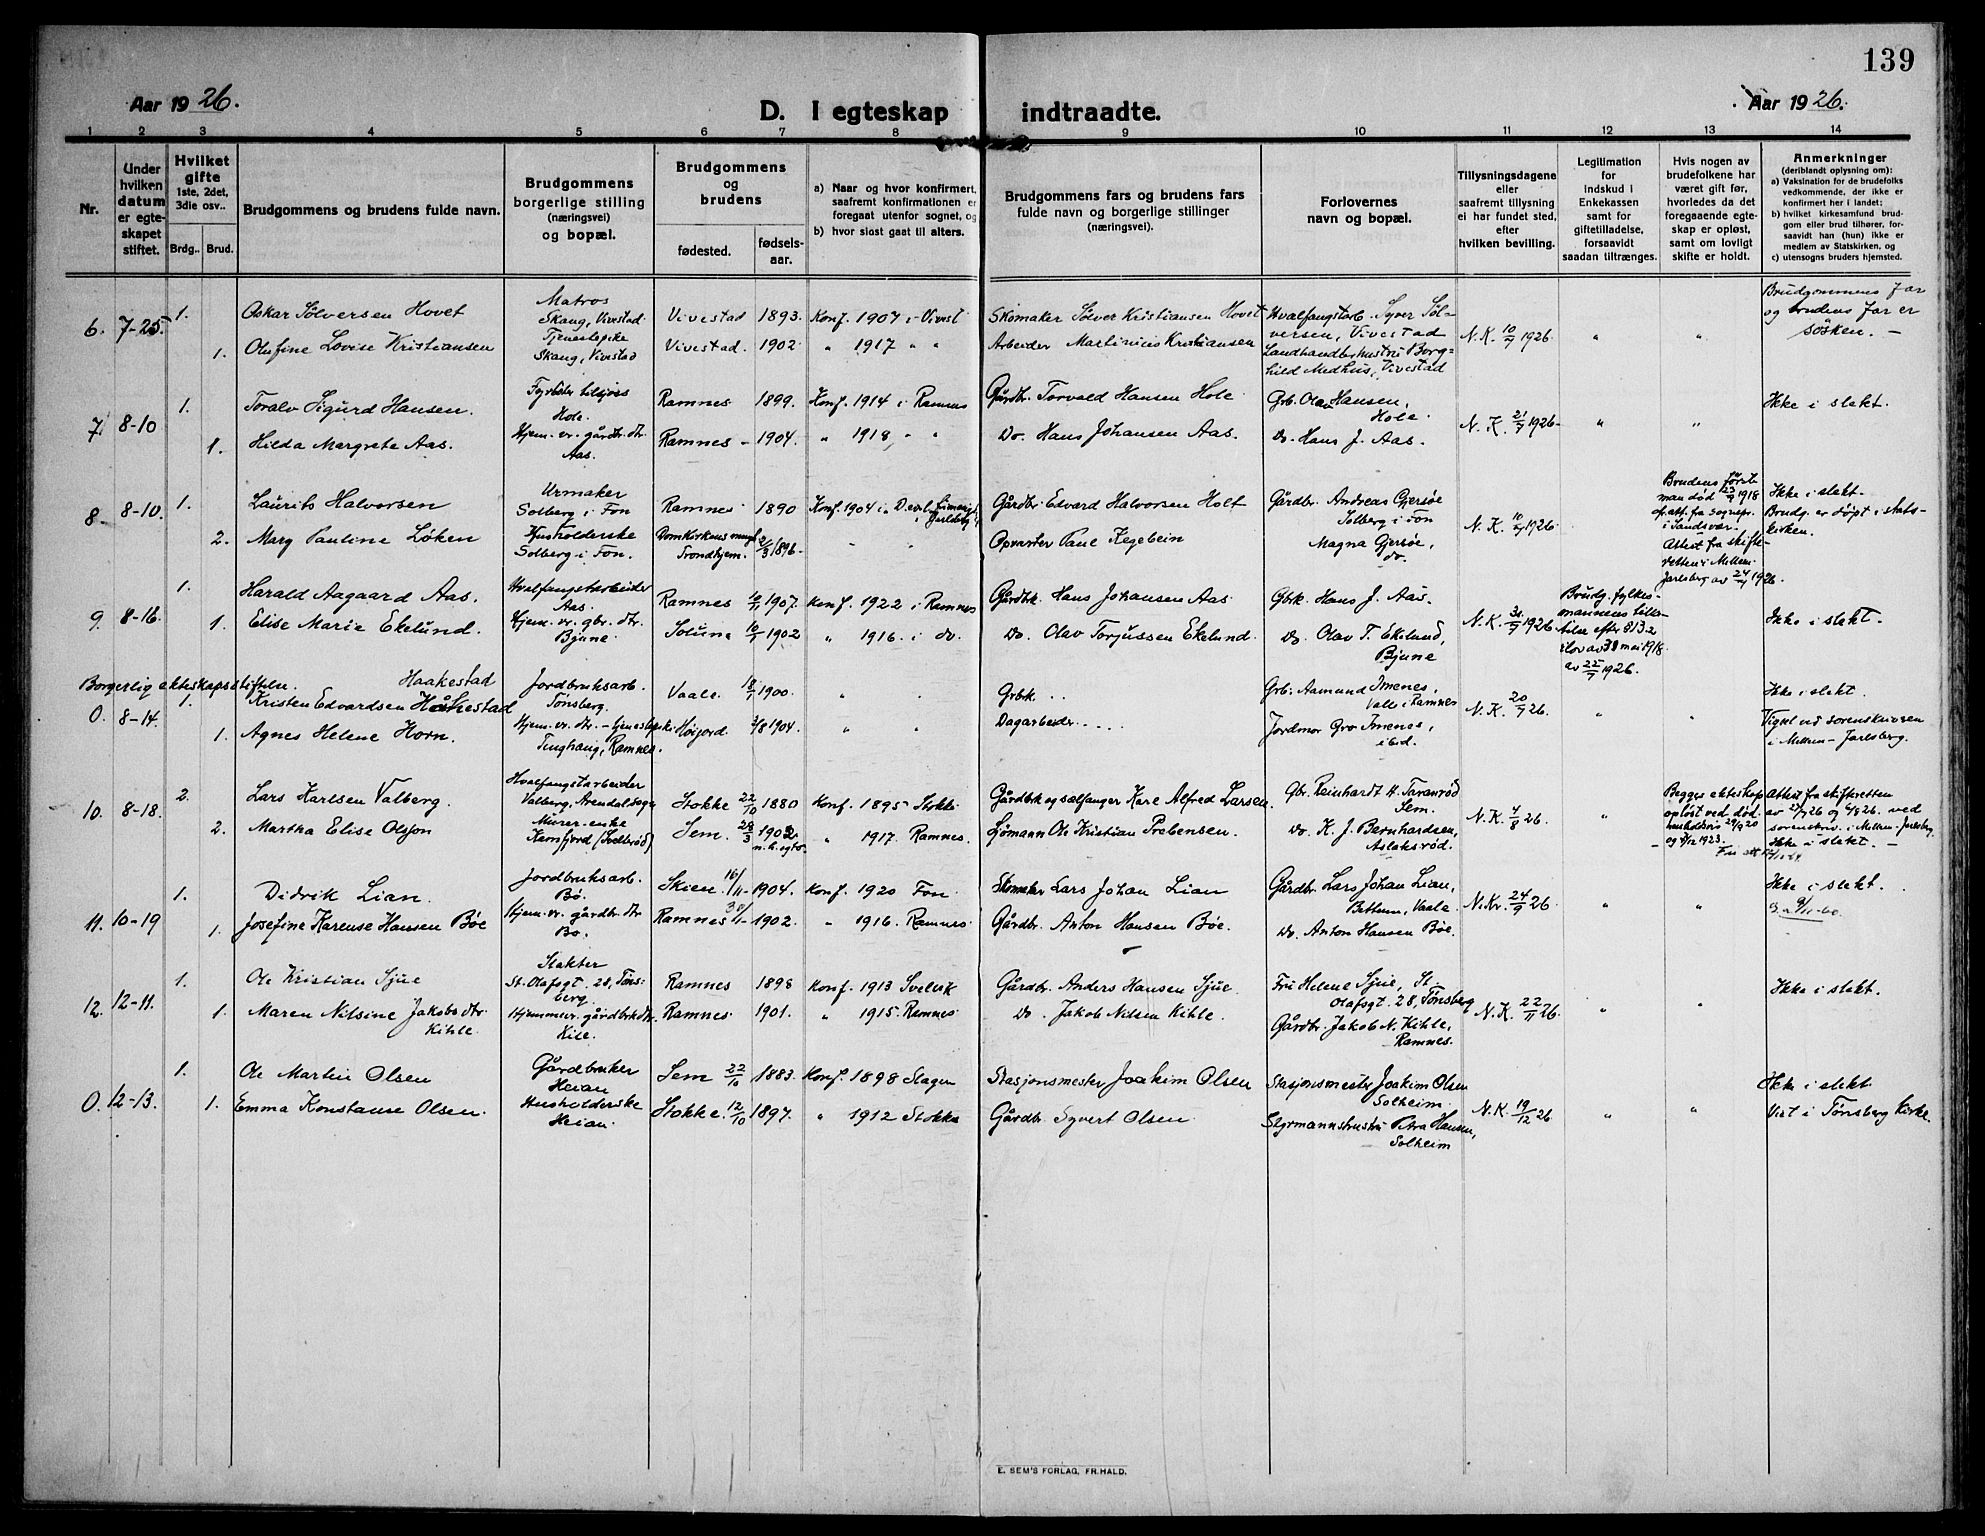 139
Aar 1926.
D. I egteskap indtraadte.
Aar 1926.
1 2 3 4 5 6 7 8 9 10 11 12 13 14
Nr.
Under
hvilken
datum
er egte-
skapet
stiftet.
Hvilket
gifte
1ste, 2det,
3die osv..
Brdg..
Brud.
Brudgommens og brudens fulde navn.
Brudgommens
borgerlige stilling
(næringsvei)
og bopæl.
Brudgommens
og
brudens
fødested.
fødsels-
aar.
a) Naar og hvor konfirmert,
saafremt konfirmationen er
foregaat utenfor sognet, og
b) hvor sidst gaat til alters.
Brudgommens fars og brudens fars
fulde navn og borgerlige stillinger
(næringsvei).
Forlovernes
navn og bopæl.
Tillysningsdagene
eller
saafremt tillysning
ei har fundet sted,
efter
hvilken bevilling.
Legitimation
for
indskud i
Enkekassen
samt for
giftetilladelse,
forsaavidt
saadan tiltrænges.
Hvis nogen av
brudefolkene har
været gift før,
hvorledes da det
foregaaende egte-
skap er opløst,
samt om lovligt
skifte er holdt.
Anmerkninger
(deriblandt oplysning om):
a) Vaksination for de brudefolks
vedkommende, der ikke er
konfirmert her i landet;
b) hvilket kirkesamfund brud-
gom eller brud tilhører, for-
saavidt han (hun) ikke er
medlem av Statskirken, og
c) utensogns bruders hjemsted.
6. 7-25
1.
Oskar Sølversen Hovet
Matros
Skaug, Vivestad
Vivestad 1893. Konf. 1907 i Vivest
Skomaker Sølver Kristiansen Hovet
Hvalfangstarb. Syver Søl-
versen, Vivestad
1. Olefine Lovise Kristiansen
Tjenestepike
Skaug, Vivestad
Vivestad. 1902. " 1917 " "
Arbeider Martinius Kristiansen
Landhandlerhustru Borg-
hild Medhus, Vivestad
N. K. 10/7 1926. " "
Brudgommens far
og brudens far er
søsken. –
7. 8-10
1.
Toralv Sigurd Hansen.
Fyrbøter tilsjøss
Hole.
Ramnes 1899. Konf. 1914 i Ramnes
Gårdbr. Torvald Hansen Hole
Grb. Olav Hansen,
Hole.
1. Hilda Margrete Aas.
Hjem. vr. gårdbr. dtr.
Aas.
Ramnes – 1904. " 1918, " "
Do. Hans Johansen Aas.
Do. Hans J. Aas.
N. K. 21/7 1926. " "
Ikke i slekt.
8. 8-10.
1.
Laurits Halvorsen
Urmaker
Solberg i Fon
Ramnes 1890 Konf. 1904 i
Gårdbr. Edvard Halvorsen Holt
Gårdbr. Andreas Gjersøe
Solberg i Fon
2. Mary Pauline Løken
Husholderske
Solberg i Fon.
Domkirkens
Trondhjem. 2/3 1896 –
Opvarter Paul Kegebein
Magna Gjersøe,
do.
N. K. 10/7 1926. "
Brudens første
man død 23/9 1918
attest fra skifte-
retten i Mellem
Jarlsberg av 24/7 1926.
Ikke i slekt.
Brudg. er døpt i stats-
kirken.
9. 8-16.
1.
Harald Aagaard Aas.
Hvalfangstarbeider
Aas.
Ramnes 1907. Konf. 1922 i Ramnes
Gårdbk. Hans Johansen Aas
Gbk. Hans J. Aas.
1. Elise Marie Ekelund.
Hjem. vr. gbr. dtr.
Bjune
Solum 1902 " 1916. i do.
Do. Olav Torjussen Ekelund.
Do. Olav T. Ekelund,
Bjune
N. K. 1926
Brudg. fylkes-
mannens tilla-
telse efter § 13 2
Lov av 31 mai 1918
av 22/7 1926.
Ikke i slekt.
Borgerlig ekteskapsstiftelse.
0. 8-14.
1.
Haakestad
Kristen Edvardsen Håkestad
Jordbruksarb.
Tønsberg.
Vaale 1900. "
Grbk. . .
Grb. Aamund Imenes,
Valle i Ramnes
1. Agnes Helene Horn.
Hjem. vr. dtr. – tjenestepike
Tinghaug, Ramnes.
Høijord. 1904. " "
Dagarbeider. . . .
Jordmor Gro Imenes,
ibid.
N. K. 20/7 26. " "
Ikke i slekt.
Vigsel ved sorenskriveren
i Mellem – Jarlsberg.
10. 8-18.
2.
Lars Karlsen Valberg.
Hvalfangstarbeider
Valberg, Arendal sogn
Stokke 22/10 1880 Konf. 1895 Stokke
Gårdbk og sælfanger Karl Alfred Larsen.
Gbr. Reinhardt H. Taranrød
Sem.
2. Martha Elise Olsson
Murer-enke
Kamfjord (Solbrød)
Sem. 28/3 1902 " 1917. Ramnes.
Lømann Ole Kristian Prebensen.
Do. K. J. Bernhardsen,
Aslaksrød.
N. K. 4/8 26. "
Begges ekteskap
opløst ved død.
Attest fra skifteretten
av 27/7 26 og 4/8 26. ved
sorenskriv. i Mellem–Jarlsberg.
Ikke i slekt. –
11. 10-19
1.
Didrik Lian.
Jordbruksarb.
Bø.
Skien. 16/11 – 1904. Konf. 1920 Fon.
Skomaker Lars Johan Lian
Gårdbr. Lars Johan Lian,
Bettum, Vaale.
1. Josefine Karense Hansen Bøe
Hjem. vr. gårdbr. dtr
Bø.
Ramnes 1902. " 1916. Ramnes.
Gårdbr. Anton Hansen Bøe.
Do. Anton Hansen Bøe.
N. Kr. 24/9 26. " "
Ikke i slekt.
12. 12-11.
1.
Ole Kristian Sjue
Slakter
St. Olafsgt. 28, Tøns-
berg.
Ramnes 1898 Konf. 1913 Svelvik
Gårdbr. Anders Hansen Sjue.
Fru Helene Sjue, St.
Olafsgt. 28, Tønsberg
1. Maren Nilsine Jakobsdtr
Kihle.
Hjemmevr. gårdbrk dtr
Kile.
Ramnes 1901. " 1915. Ramnes
Do. Jakob Nilsen Kihle.
Gårdbr. Jakob N. Kihle,
Ramnes.
N. K. 22/11 26. " "
Ikke i slekt.
0. 12-13.
1.
Ole Martin Olsen
Gårdbruker
Heian
Sem 22/10 1883. Konf. 1898 Slagen
Stasjonsmester Joakim Olsen
Stasjonsmester Joakim Olsen
Solheim
1. Emma Konstanse Olsen.
Husholderske
Heian.
Stokke. 12/10 1897. " 1912 Stokke
Gårdbr. Syvert Olsen
Styrmannshustru Petra Hansen,
Solheim
N. K. 19/12 26 " "
Ikke i slekt
Viet i Tønsberg Kirke.
E. SEM'S FORLAG, FR.HALD.